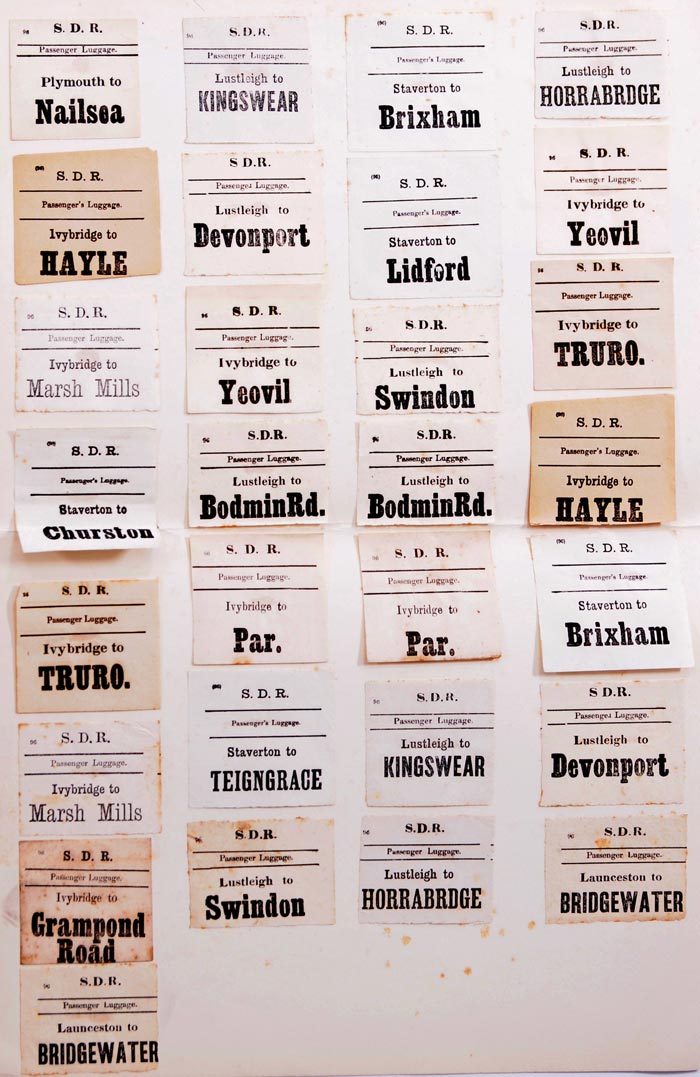 96 S. D. R.
Passenger Luggage.
Plymouth to
Nailsea
(96)
S. D. R.
Passenger's Luggage.
Ivybridge to
HAYLE
96 S. D. R.
Passenger Luggage.
Ivybridge to
Marsh Mills
(96)
S. D. R.
Passenger's Luggage.
Staverton to
Churston
96 S. D. R.
Passenger Luggage.
Ivybridge to
TRURO.
96 S. D. R.
Passenger Luggage.
Ivybridge to
Marsh Mills
96 S. D. R.
Passenger Luggage.
Ivybridge to
Grampond
Road
96 S.D.R.
Passenger Luggage.
Launceston to
BRIDGEWATER
96 S.D.R.
Passenger Luggage.
Lustleigh to
KINGSWEAR
S D.R.
Passenger Luggage.
Lustleigh to
Devonport
96 S. D. R.
Passenger Luggage.
Ivybridge to
Yeovil
96 S.D.R.
Passenger Luggage.
Lustleigh to
BodminRd.
96 S. D. R.
Passenger Luggage.
Ivybridge to
Par.
(96)
S. D. R.
Passenger's Luggage.
Staverton to
TEIGNGRACE
96 S.D.R.
Passenger Luggage.
Lustleigh to
Swindon
(96)
S. D. R.
Passenger's Luggage.
Staverton to
Brixham
(96)
S. D. R.
Passenger's Luggage.
Staverton to
Lidford
96 S.D.R.
Passenger Luggage.
Lustleigh to
Swindon
96 S.D.R.
Passenger Luggage.
Lustleigh to
BodminRd.
96 S. D. R.
Passenger Luggage.
Ivybridge to
Par.
96 S.D.R.
Passenger Luggage.
Lustleigh to
KINGSWEAR
96 S.D.R.
Passenger Luggage.
Lustleigh to
HORRABRDGE
96 S.D.R.
Passenger Luggage.
Lustleigh to
HORRABRDGE
96 S. D. R.
Passenger Luggage.
Ivybridge to
Yeovil
96 S. D. R.
Passenger Luggage.
Ivybridge to
TRURO.
(96)
S. D. R.
Passenger's Luggage.
Ivybridge to
HAYLE
(96)
S. D. R.
Passenger's Luggage.
Staverton to
Brixham
S D.R.
Passenger Luggage.
Lustleigh to
Devonport
96 S.D.R.
Passenger Luggage.
Launceston to
BRIDGEWATER